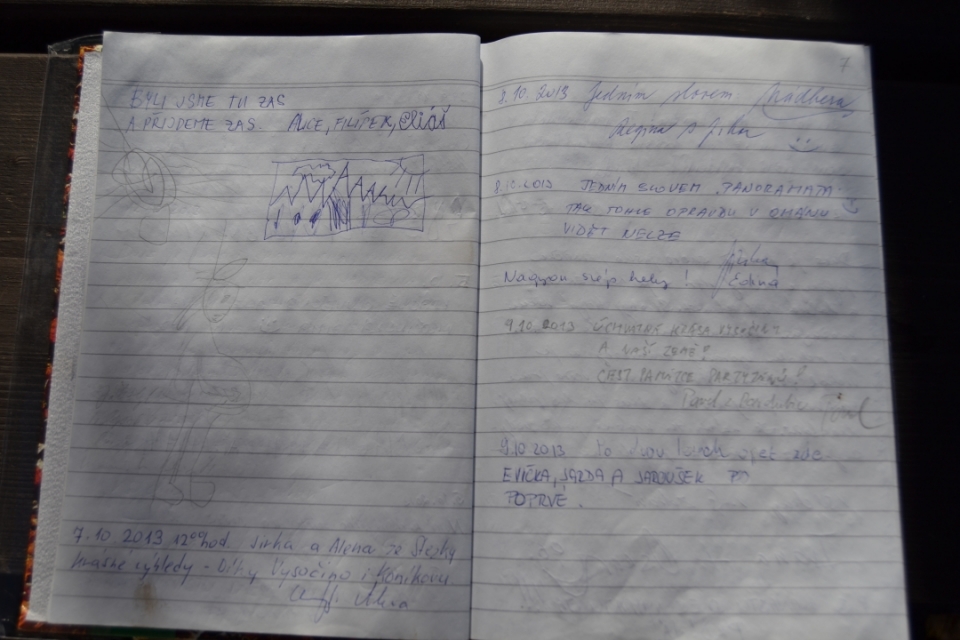 BYLI JSME TU ZAS
A PŘIJDEME ZAS. ALICE, FILÍPEK, Eliáš
7.10 2013 12 00 hod. Jirka a Alena ze
krásné výhledy - Díky Vysočino i
7
8.10. 2013 Jedním slovem Nádhera
Regina a Jirka
8.10.2013 JEDNÍM SLOVEM PANORAMATA
TAK TOHLE OPRAVDU V OMÁNU
VIDĚT NELZE
Nagyon szép hely! Edina
9.10.2013 KRÁSA VYSOČINY
A NAŠÍ ZEMĚ!
ČEST PAMÁTCE PARTYZÁNŮ!
9.10 2013 zde
EVIČKA, JARDA A JAROUŠEK
POPRVÉ.